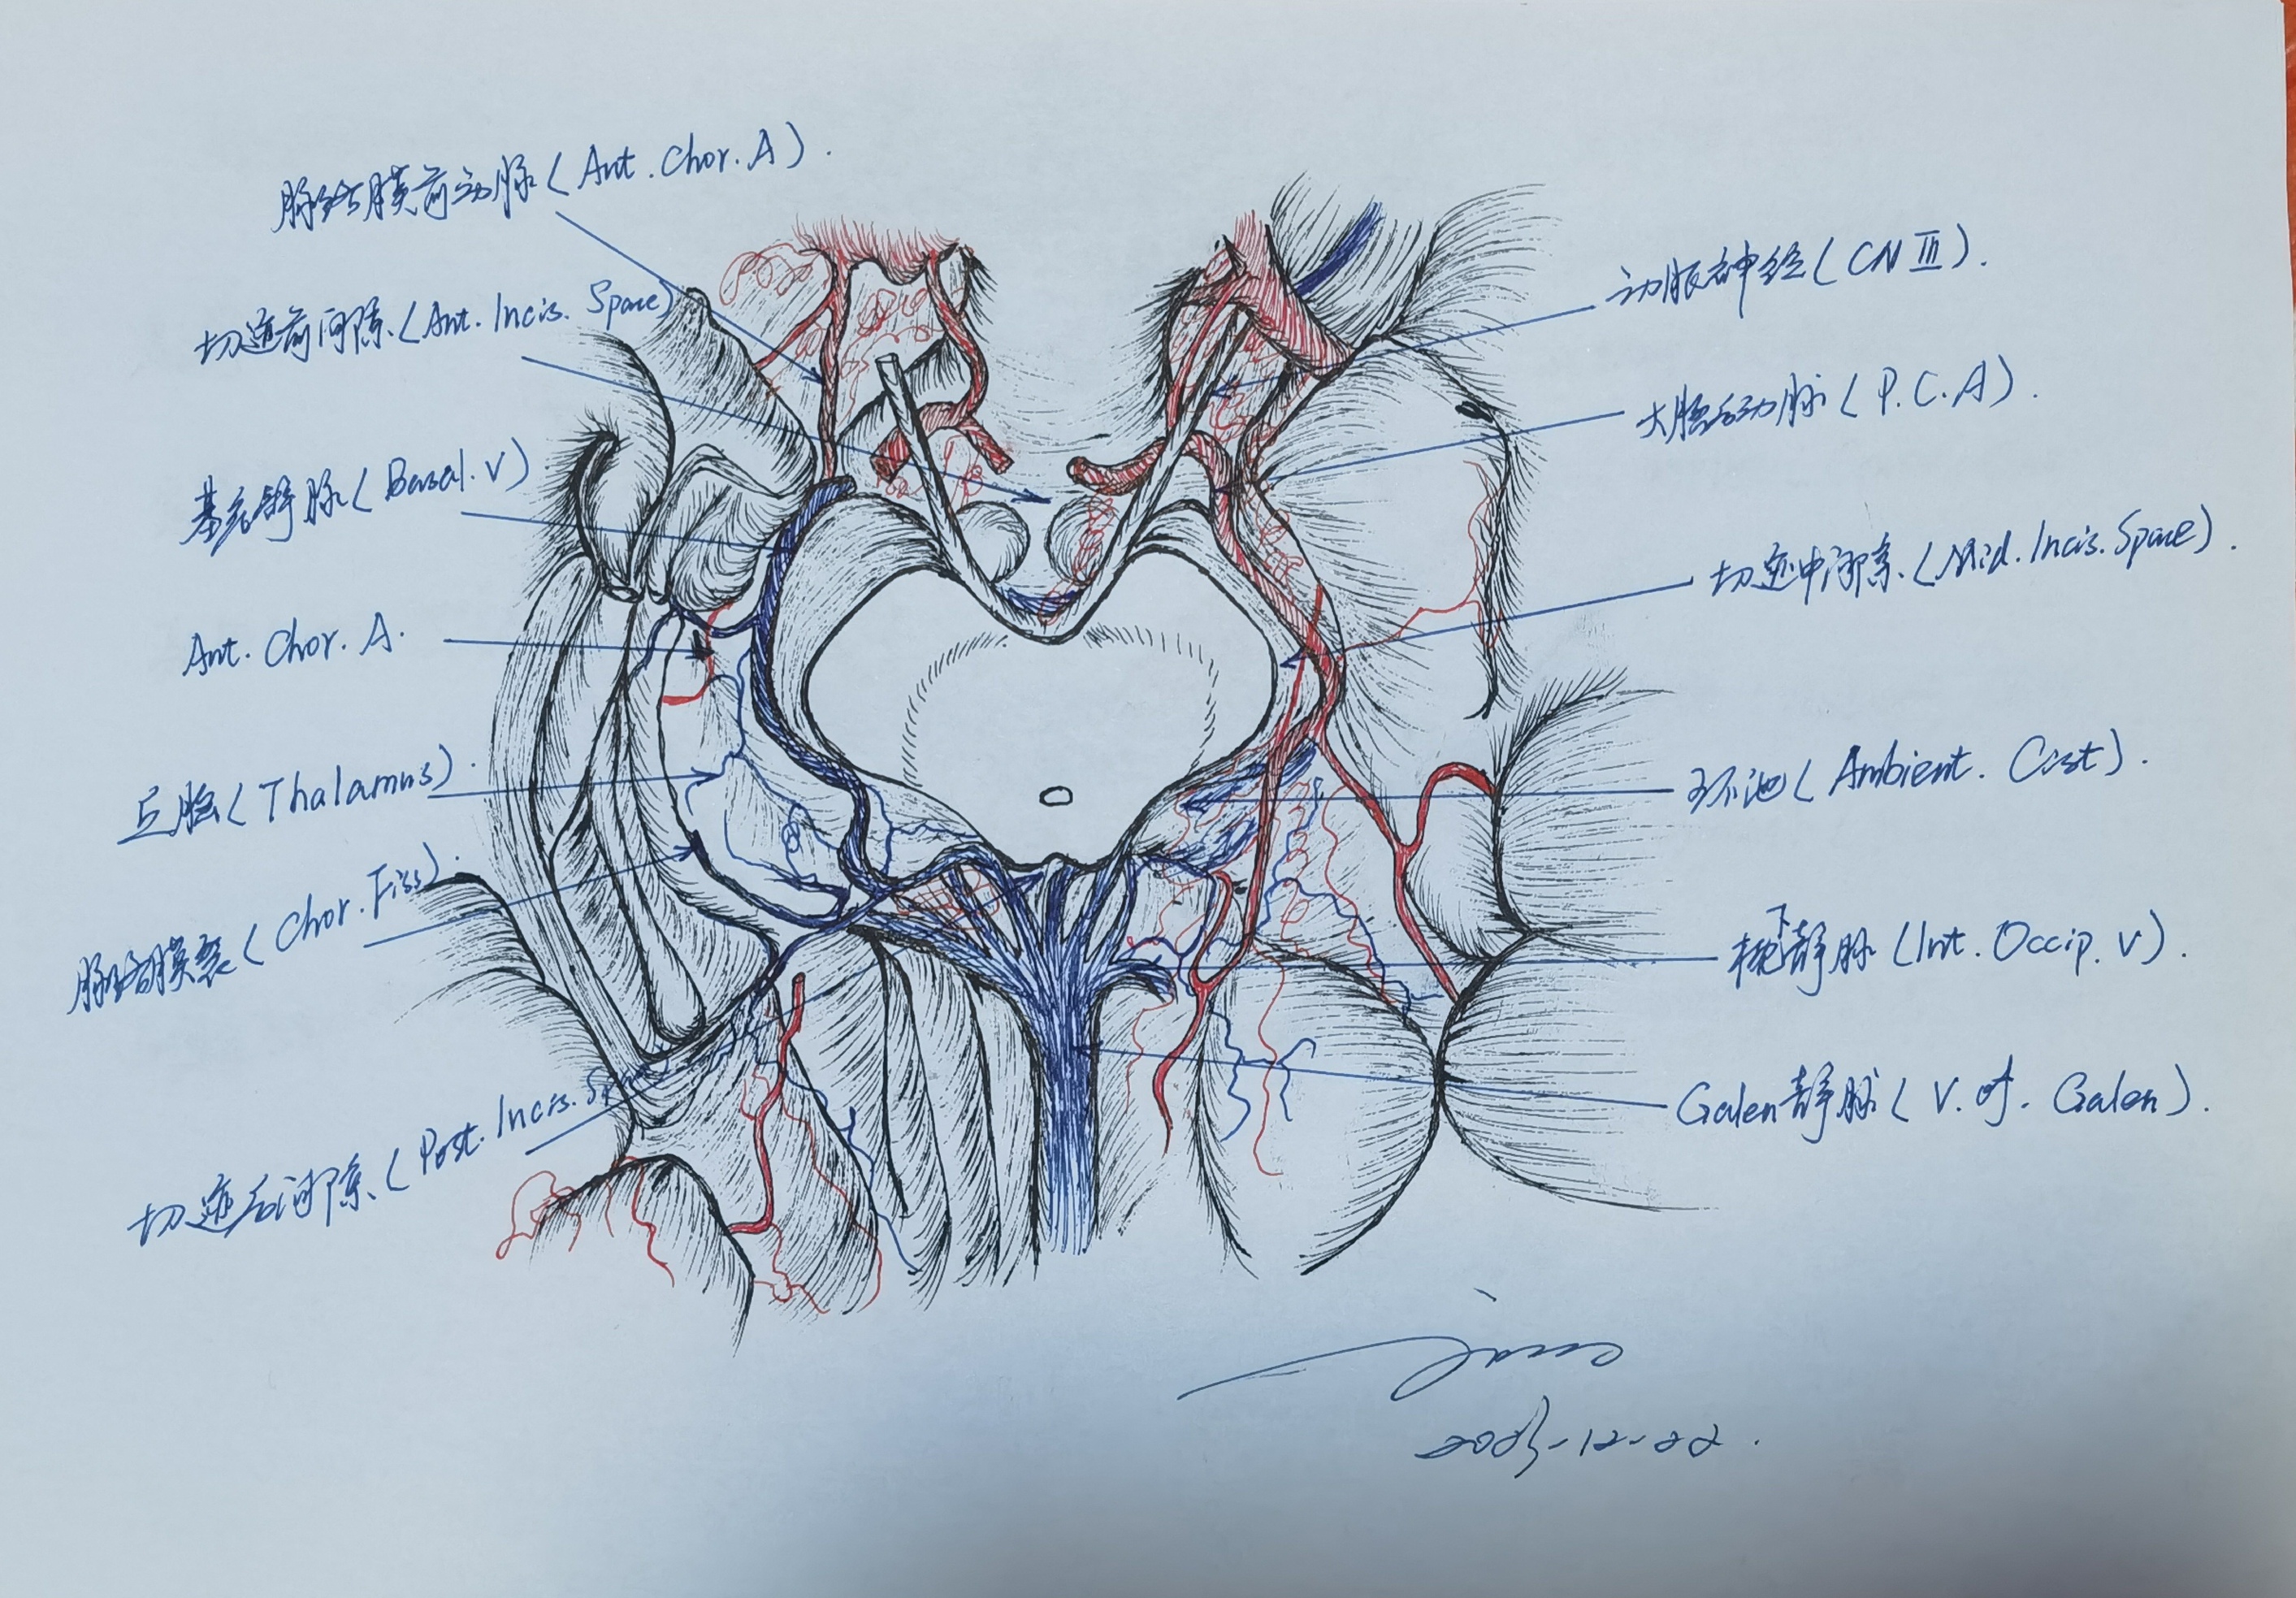 脉络膜前动脉(Ant. Chor. A).
切迹前间隙.(Ant. Incis. Space)
基底静脉(Basal. V)
Ant. Chor. A.
丘脑(Thalamus).
脉络膜裂(Chor. Fiss).
切迹后间隙.(Post. Incis. Sp
动眼神经(CN III).
大脑后动脉(P.C.A).
切迹中间隙.(Mid. Incis. Space).
环池(Ambient. Cist).
枕下静脉(Int. Occip. V).
Galen静脉(V. of. Galen).
2023-12-22.